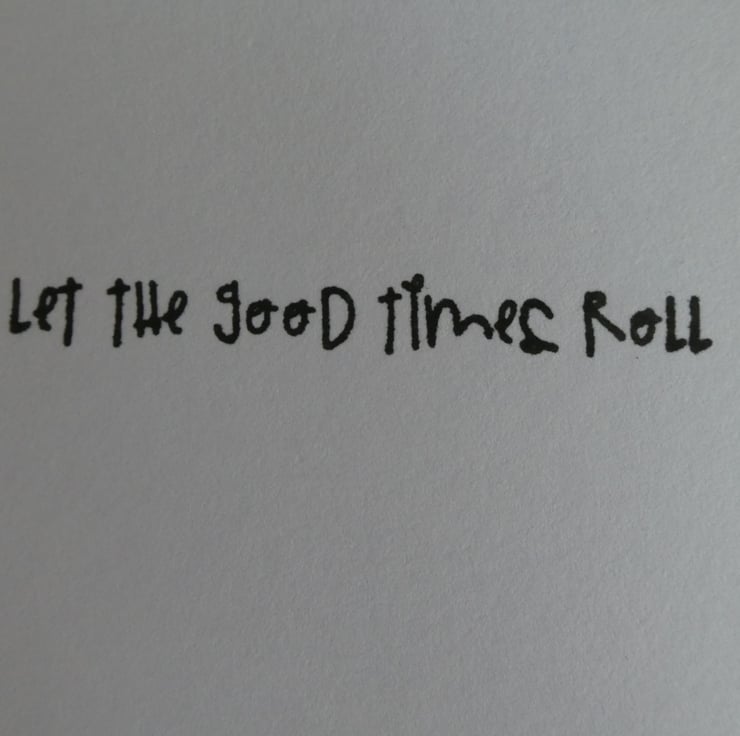 Let tHe gooD times RoLL